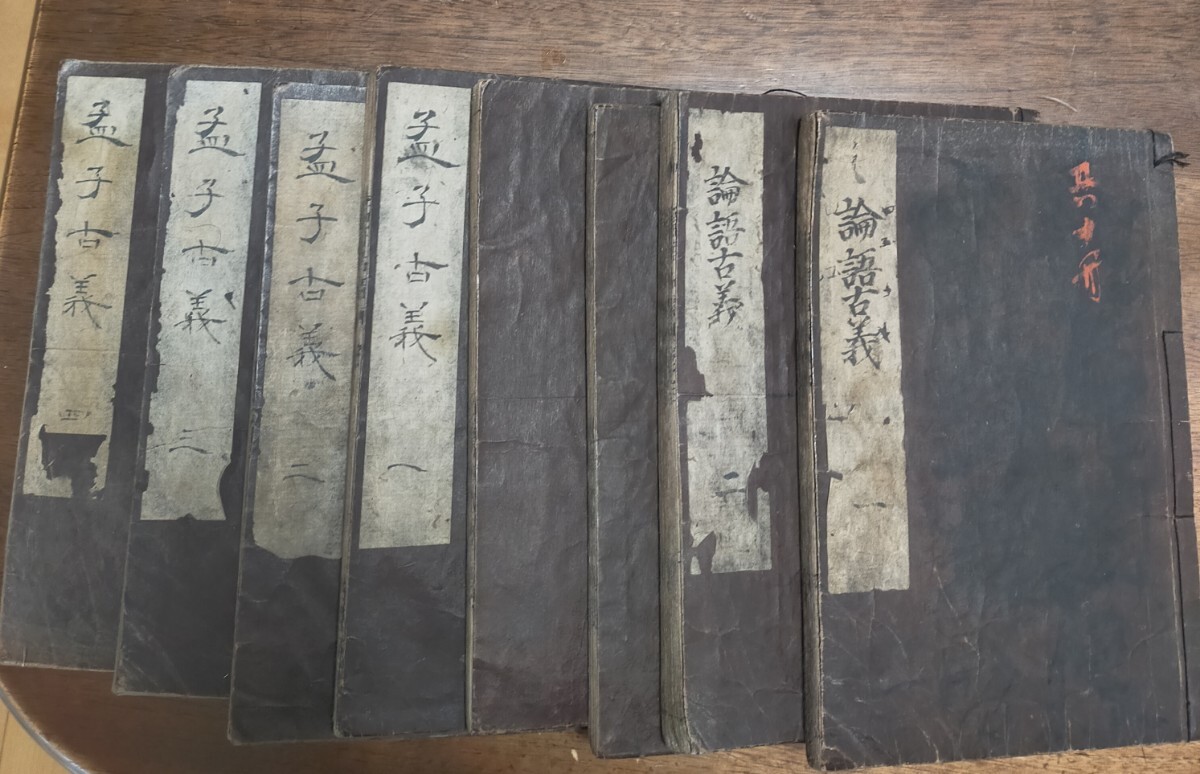 論語古義 一
共十冊
論語古義 二
孟子古義 一
孟子古義 二
孟子古義 三
孟子古義 四